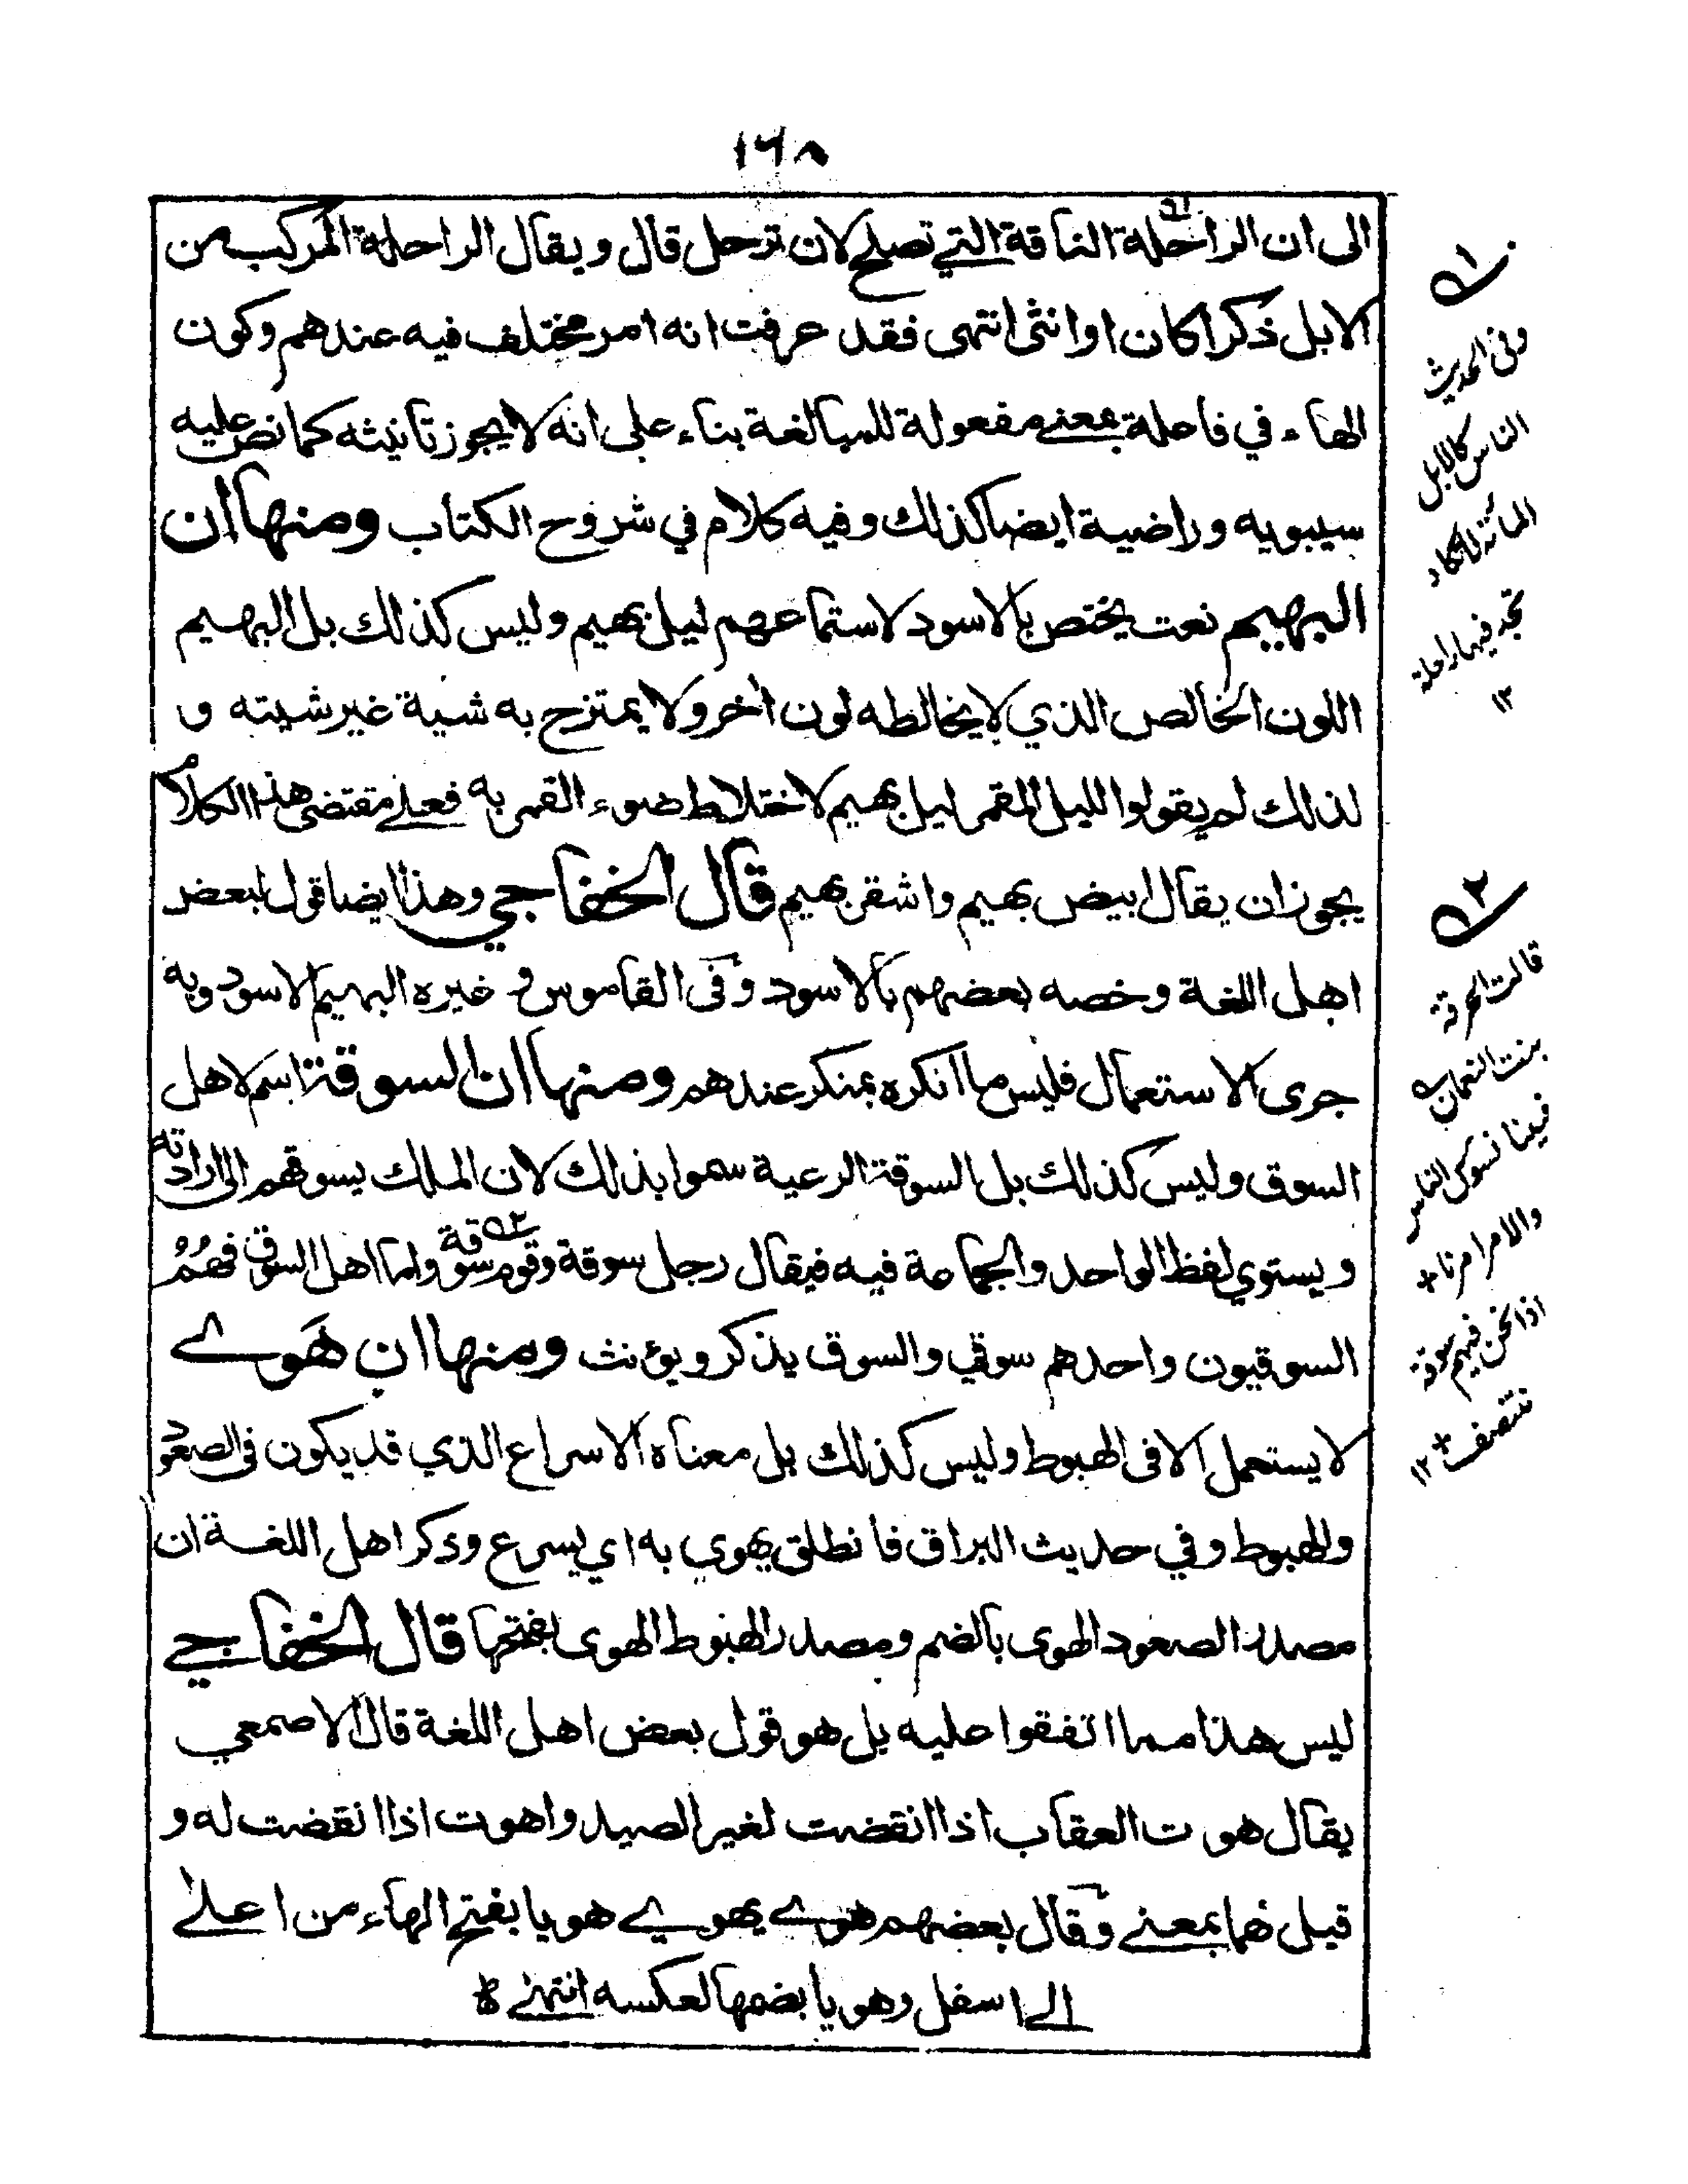 ١٦٨
الى ان الراحلة الناقة التي تصلح لان ترحل قال ويقال الراحلة المركب من
الابل ذكرا كان او انثى انتهى فقد عرفت انه امر مختلف فيه عندهم وكون
الهاء في فاعلة بمعنى مفعولة للمبالغة بناء على انه لا يجوز تانيثه كما نص عليه
سيبويه وراضية ايضا كذلك وفيه كلام في شروح الكتاب ومنها ان
البهيم نعت يختص بالاسود لاستماعهم ليل بهيم وليس كذلك بل البهيم
اللون الخالص الذي لا يخالطه لون اخر ولا يمتزج به شية غير شيته و
لذلك لم يقولوا لليل المقمر ليل بهيم لاختلاط ضوء القمر به فعلى مقتضى هذا الكلام
يجوز ان يقال ابيض بهيم واشقر بهيم قال الخفاجي وهذا ايضا قول لبعض
اهل اللغة وخصه بعضهم بالاسود وفى القاموس وغيره البهيم الاسود وبه
جرى الاستعمال فليس ما انكره بمنكر عندهم ومنها ان السوقة اسم لاهل
السوق وليس كذلك بل السوقة الرعية سموا بذلك لان الملك يسوقهم الى ارادته
ويستوي لفظ الواحد والجماعة فيه فيقال رجل سوقة وقوم سوقة واما اهل السوق فهم
السوقيون واحدهم سوقي والسوق يذكر ويؤنث ومنها ان هَوے
لا يستعمل الا فى الهبوط وليس كذلك بل معناه الاسراع الذي قد يكون فى الصعود
والهبوط وفي حديث البراق فانطلق يهوي به اي يسرع وذكر اهل اللغة ان
مصدر الصعود الهوى بالضم ومصدر الهبوط الهوى بفتحها قال الخفاجے
ليس هذا مما اتفقوا عليه بل هو قول بعض اهل اللغة قال الاصمعي
يقال هوت العقاب اذا انقضت لغير الصيد واهوت اذا انقضت له و
قيل هما بمعنے وقال بعضهم هوے يهوے هويا بفتح الهاء من اعلے
الے اسفل وهويا بضمها لعكسه انتهے
١
وفى الحديث
الناس كالابل
المائة لا تكاد
تجد فيها راحلة
١٢
٢
قالت الحرقة
بنت النعمان
فبينا نسوس الناس
والامر امرنا
اذا نحن فيهم سوقة
نتنصف ١٢